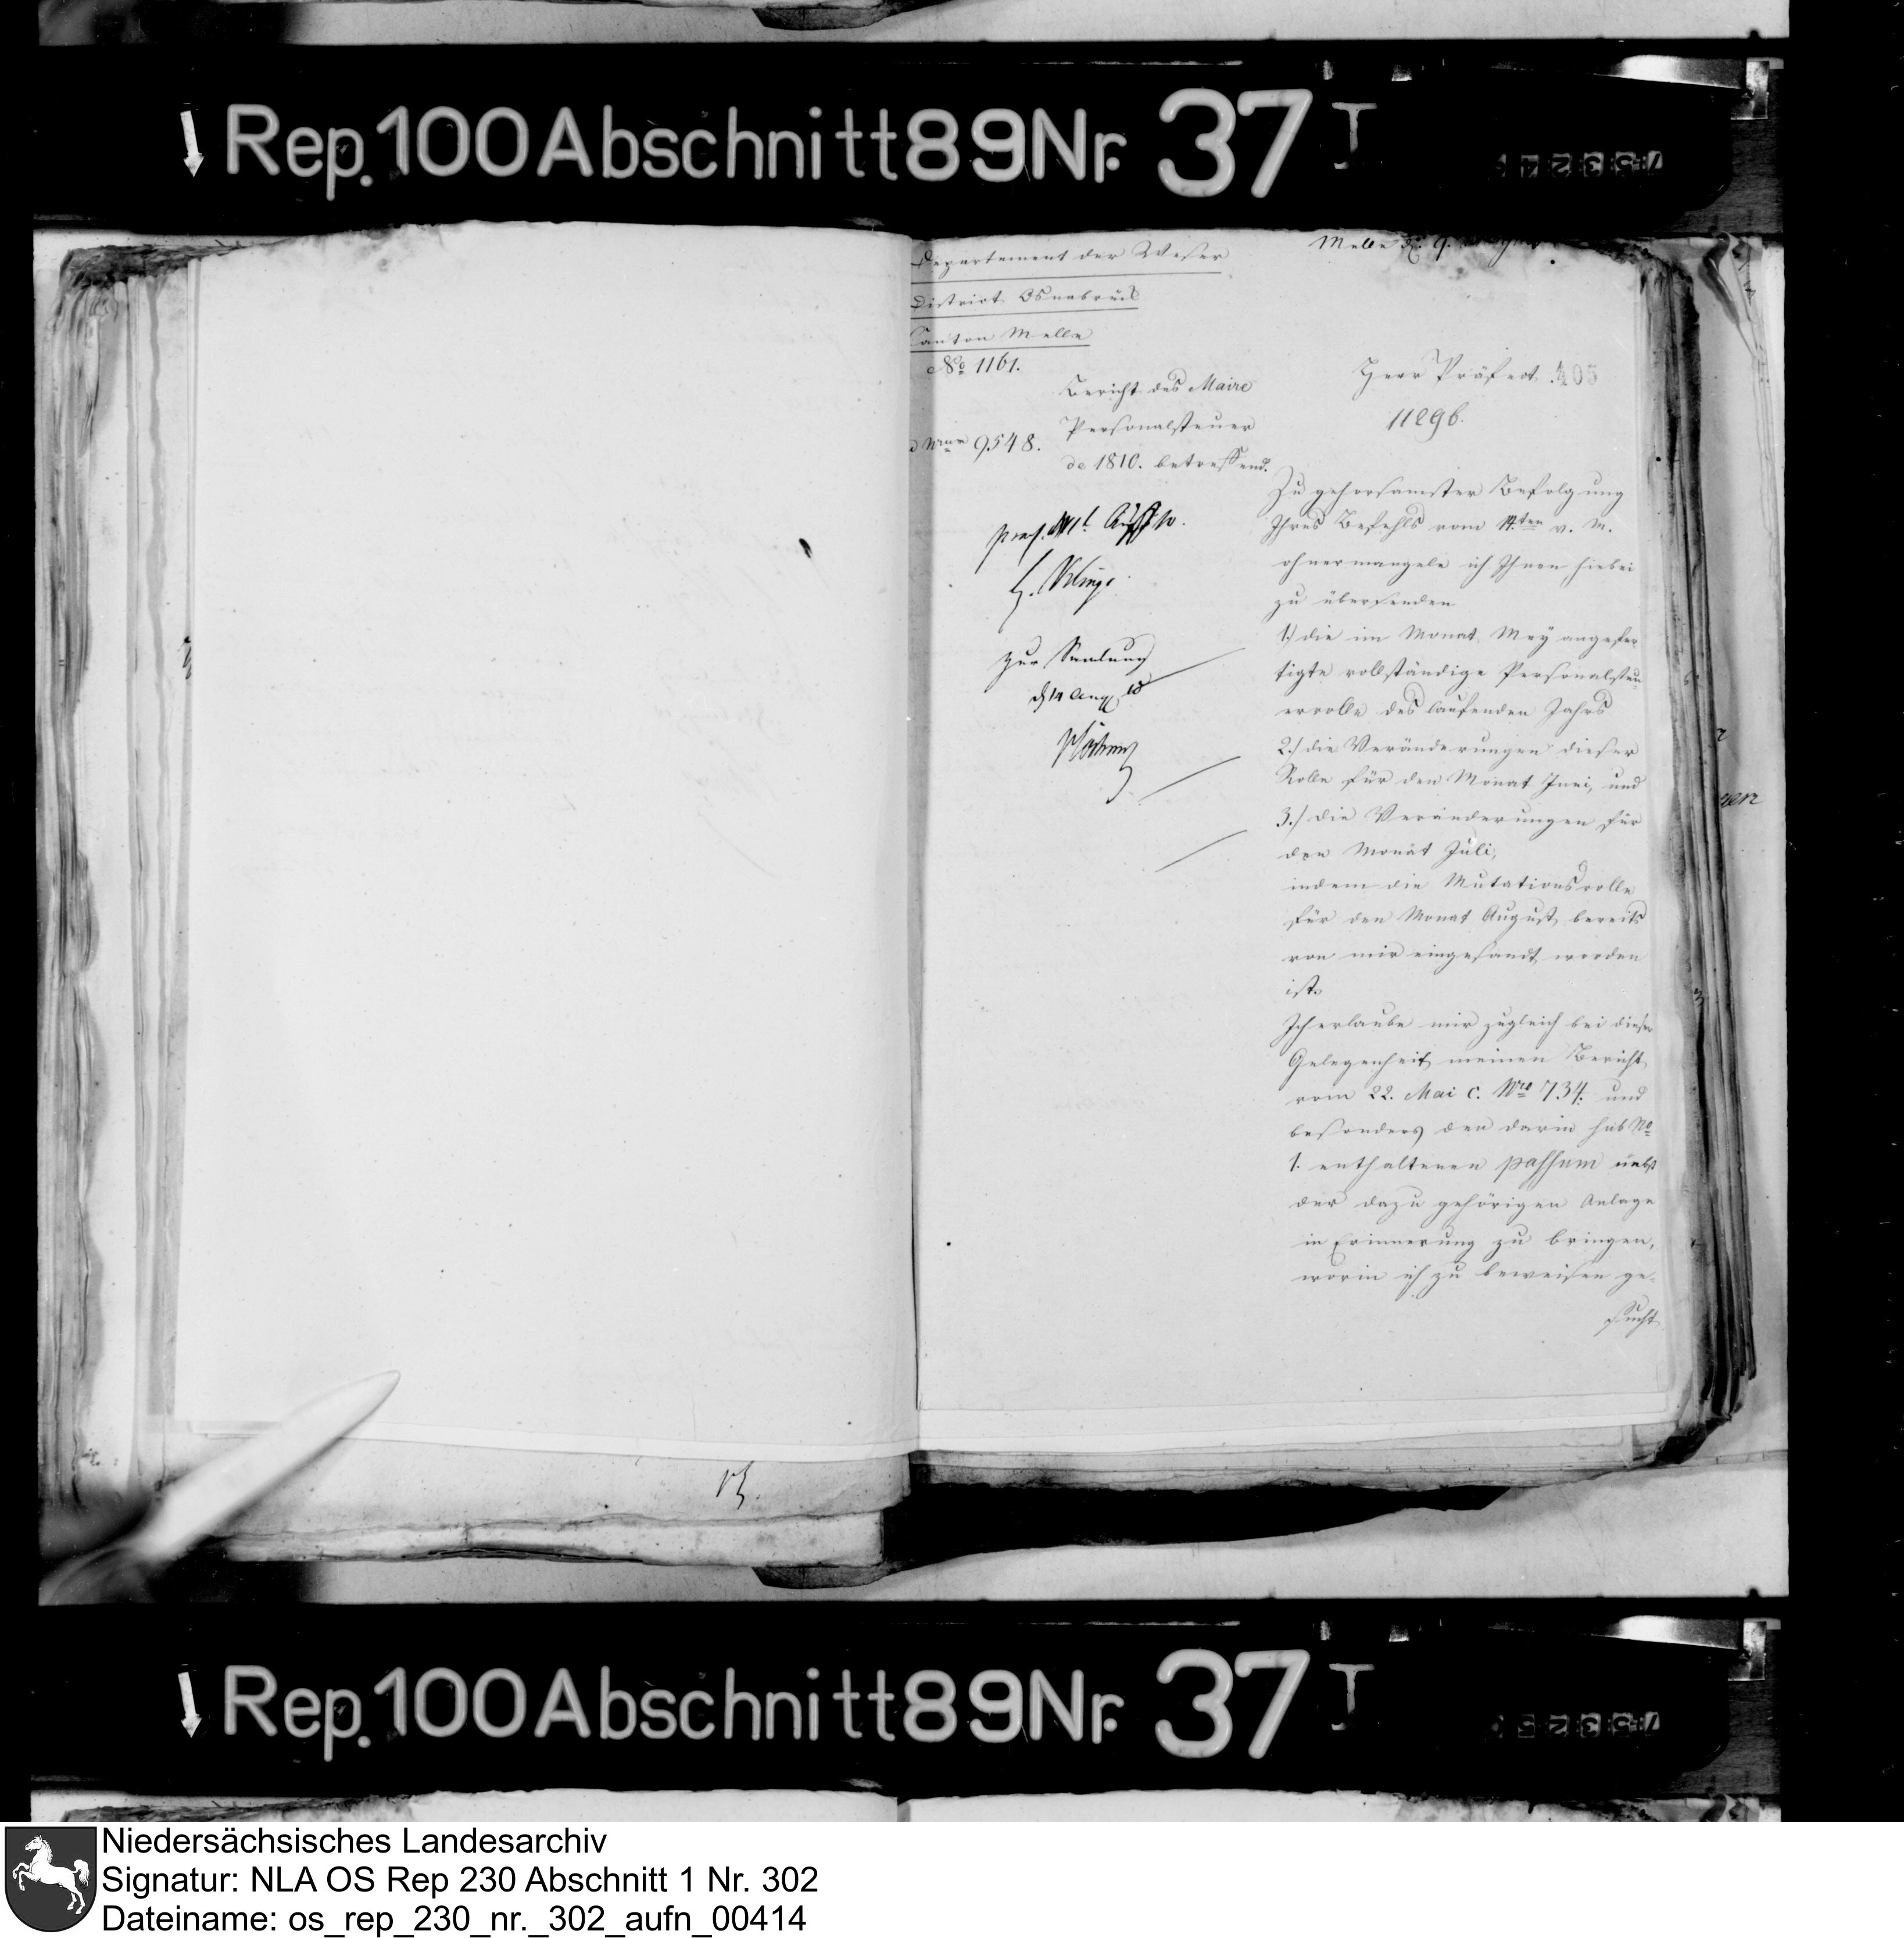 Rep. 100 Abschnitt 89 Nr. 37 I
Departement der Weser
District Osnabrück
Canton Melle
No 1161.
Melle d. 9.
Bericht des Maire
Personalsteuer
de 1810. betreffend.
9548.
Herr Präfect 405
11296.
zur Samlung
d 14 Aug 10
Zu gehorsamster Befolgung
Ihres Befehls vom 14ten v. M.
ohnermangele ich Ihnen hiebei
zu übersenden
1.) die im Monat Mey angefer
tigte vollständige Personalsteu
errolle des laufenden Jahrs
2.) die Veränderungen dieser
Rolle für den Monat Juni, und
3.) die Veränderungen für
den Monat Juli,
indem die Mutationsrolle
für den Monat August bereits
von mir eingesandt worden
ist.
Ich erlaube mir zugleich bei dieser
Gelegenheit meinen Bericht
vom 22. Mai c. Nro 734. und
besonders den darin sub No
1. enthaltenen passum nebst
der dazu gehörigen Anlage
in Erinnerung zu bringen,
worin ich zu beweisen ge-
sucht
Rep. 100 Abschnitt 89 Nr. 37 I
Niedersächsisches Landesarchiv
Signatur: NLA OS Rep 230 Abschnitt 1 Nr. 302
Dateiname: os_rep_230_nr._302_aufn_00414